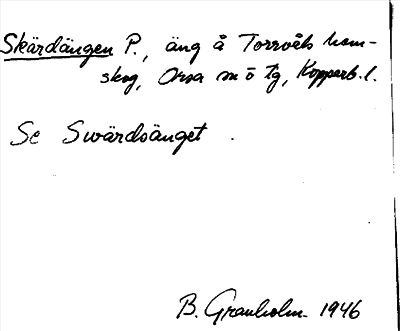 Skärdängen P., äng å Torrvåls hem-
skog, Orsa sn ö tg, Kopparb. l.
Se Swärdsänget.
B. Granholm 1946